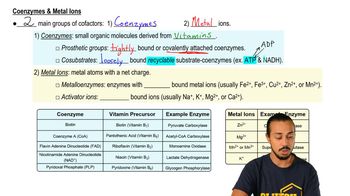 Coenzymes & Metal Ions
● 2 main groups of cofactors: 1) Coenzymes 2) Metal ions.
1) Coenzymes: small organic molecules derived from vitamins.
□ Prosthetic groups: tightly bound or covalently attached coenzymes.
ADP
□ Cosubstrates: loosely bound recyclable substrate-coenzymes (ex. ATP & NADH).
2) Metal Ions: metal atoms with a net charge.
□ Metalloenzymes: enzymes with ________ bound metal ions (usually Fe2+, Fe3+, Cu2+, Zn2+, or Mn2+).
□ Activator ions: ________ bound ions (usually Na+, K+, Mg2+, or Ca2+).
Coenzyme Vitamin Precursor Example Enzyme
Biotin Biotin (Vitamin B7) Pyruvate Carboxylase
Coenzyme A (CoA) Pantothenic Acid (Vitamin B5) Acetyl-CoA Carboxylase
Flavin Adenine Dinucleotide (FAD) Riboflavin (Vitamin B2) Monoamine Oxidase
Nicotinamide Adenine Dinucleotide (NAD+) Niacin (Vitamin B3) Lactate Dehydrogenase
Pyridoxal Phosphate (PLP) Pyridoxine (Vitamin B6) Glycogen Phosphorylase
Metal Ions Example Enzyme
Zn2+
Mg2+
Mn2+ or
K+